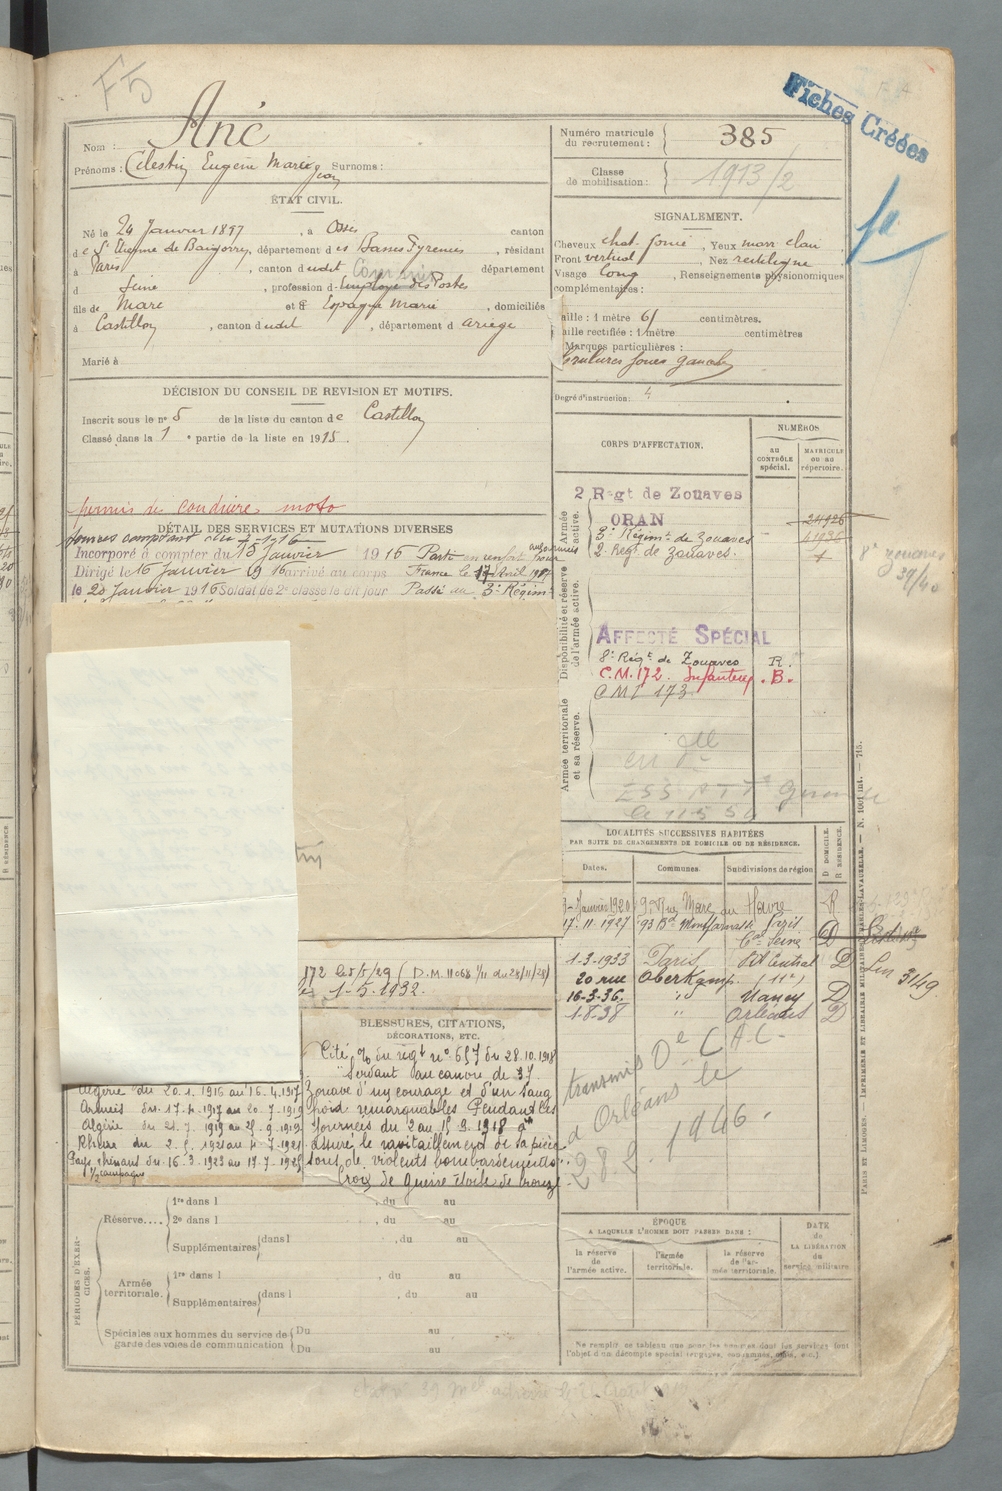 F5
Fiches Créées
Nom : Anc
Prénoms : Célestin Eugène Marie Jean Surnoms :
ÉTAT CIVIL.
Né le 24 Janvier 1897, à Osses canton
de St Etienne de Baïgorry, département des Basses Pyrénées, résidant
à Paris, canton dudit département
d Seine, profession d'employé des Postes
fils de Marc et de Espagne Marie, domiciliés
à Castillon, canton dudit, département d Ariège
Marié à
DÉCISION DU CONSEIL DE REVISION ET MOTIFS.
Inscrit sous le n° 5 de la liste du canton de Castillon
Classé dans la 1e partie de la liste en 1915.
permis de conduire moto
DÉTAIL DES SERVICES ET MUTATIONS DIVERSES
Incorporé à compter du 15 Janvier 1916
Dirigé le 16 Janvier 1916 arrivé au corps France le 17 Avril 1917
le 20 Janvier 1916 Soldat de 2e classe le dit jour Passé au 3e Régim-
172 le 5/5/29 (D.M. 11068 1/11 du 28/11/28)
1-5-1932.
BLESSURES, CITATIONS,
DÉCORATIONS, ETC.
Cité % du régt n° 657 du 28.10.1918
"Servant au canon de 37
Zouave d'un courage et d'un sang
froid remarquables Pendant les
journées du 2 au 15 9. 1918 a
assuré le ravitaillement de sa pièce
sous de violents bombardements".
Croix de Guerre étoile de bronze
Algérie du 20.1.1916 au 16.4.1917
Armées du 17.4.1917 au 20.7.1919
Algérie du 21.7.1919 au 25.9.1919
Pays rhénans du 16.3.1923 au 17.7.1925
1/2 campagne
PÉRIODES D'EXERCICES.
Réserve....
1re dans l , du au
2e dans l , du au
Supplémentaires dans l , du au
Armée territoriale.
1re dans l , du au
Supplémentaires dans l , du au
Spéciales aux hommes du service de garde des voies de communication
Du au
Du au
Numéro matricule du recrutement : 385
Classe de mobilisation : 1913/2
SIGNALEMENT.
Cheveux chat. foncé, Yeux marr clair
Front vertical, Nez rectiligne
Visage long, Renseignements physionomiques
complémentaires :
aille : 1 mètre 61 centimètres.
aille rectifiée : 1 mètre centimètres
Marques particulières :
Brulures joues gauche
Degré d'instruction : 4
CORPS D'AFFECTATION.
NUMÉROS
au CONTRÔLE spécial.
MATRICULE ou au répertoire.
Armée active.
2 Regt de Zouaves
ORAN
3e Régimt de Zouaves
2e Regt de Zouaves.
8e zouaves
39/40
Disponibilité et réserve de l'armée active.
AFFECTÉ SPÉCIAL
8e Régt de Zouaves R.
C.M. 172. Infanterie . B.
CMI 173
Armée territoriale et sa réserve.
LOCALITÉS SUCCESSIVES HABITÉES
PAR SUITE DE CHANGEMENTS DE DOMICILE OU DE RÉSIDENCE.
Dates. Communes. Subdivisions de région D DOMICILE. R RÉSIDENCE.
9-Janvier 1920 9 Rue Mare au Havre R
17.11.1927 93 Bd Montparnasse Paris
Cal Seine D
1.3.1933 Paris Pl Central D
20 rue Oberkampf (11e)
16-3-36. " Nancy D
1-8-38 " Orléans D
3149
transmis De C A C
à Orléans le
28 2. 1946.
ÉPOQUE
A LAQUELLE L'HOMME DOIT PASSER DANS :
la réserve de l'armée active.
l'armée territoriale.
la réserve de l'armée territoriale.
DATE de LA LIBÉRATION du service militaire
Ne remplir ce tableau que pour les hommes dont les services font
l'objet d'un décompte spécial (engagés, condamnés, omis, etc.)
PARIS ET LIMOGES. — IMPRIMERIE ET LIBRAIRIE MILITAIRES CHARLES-LAVAUZELLE. — N. 1001 int. — 715.